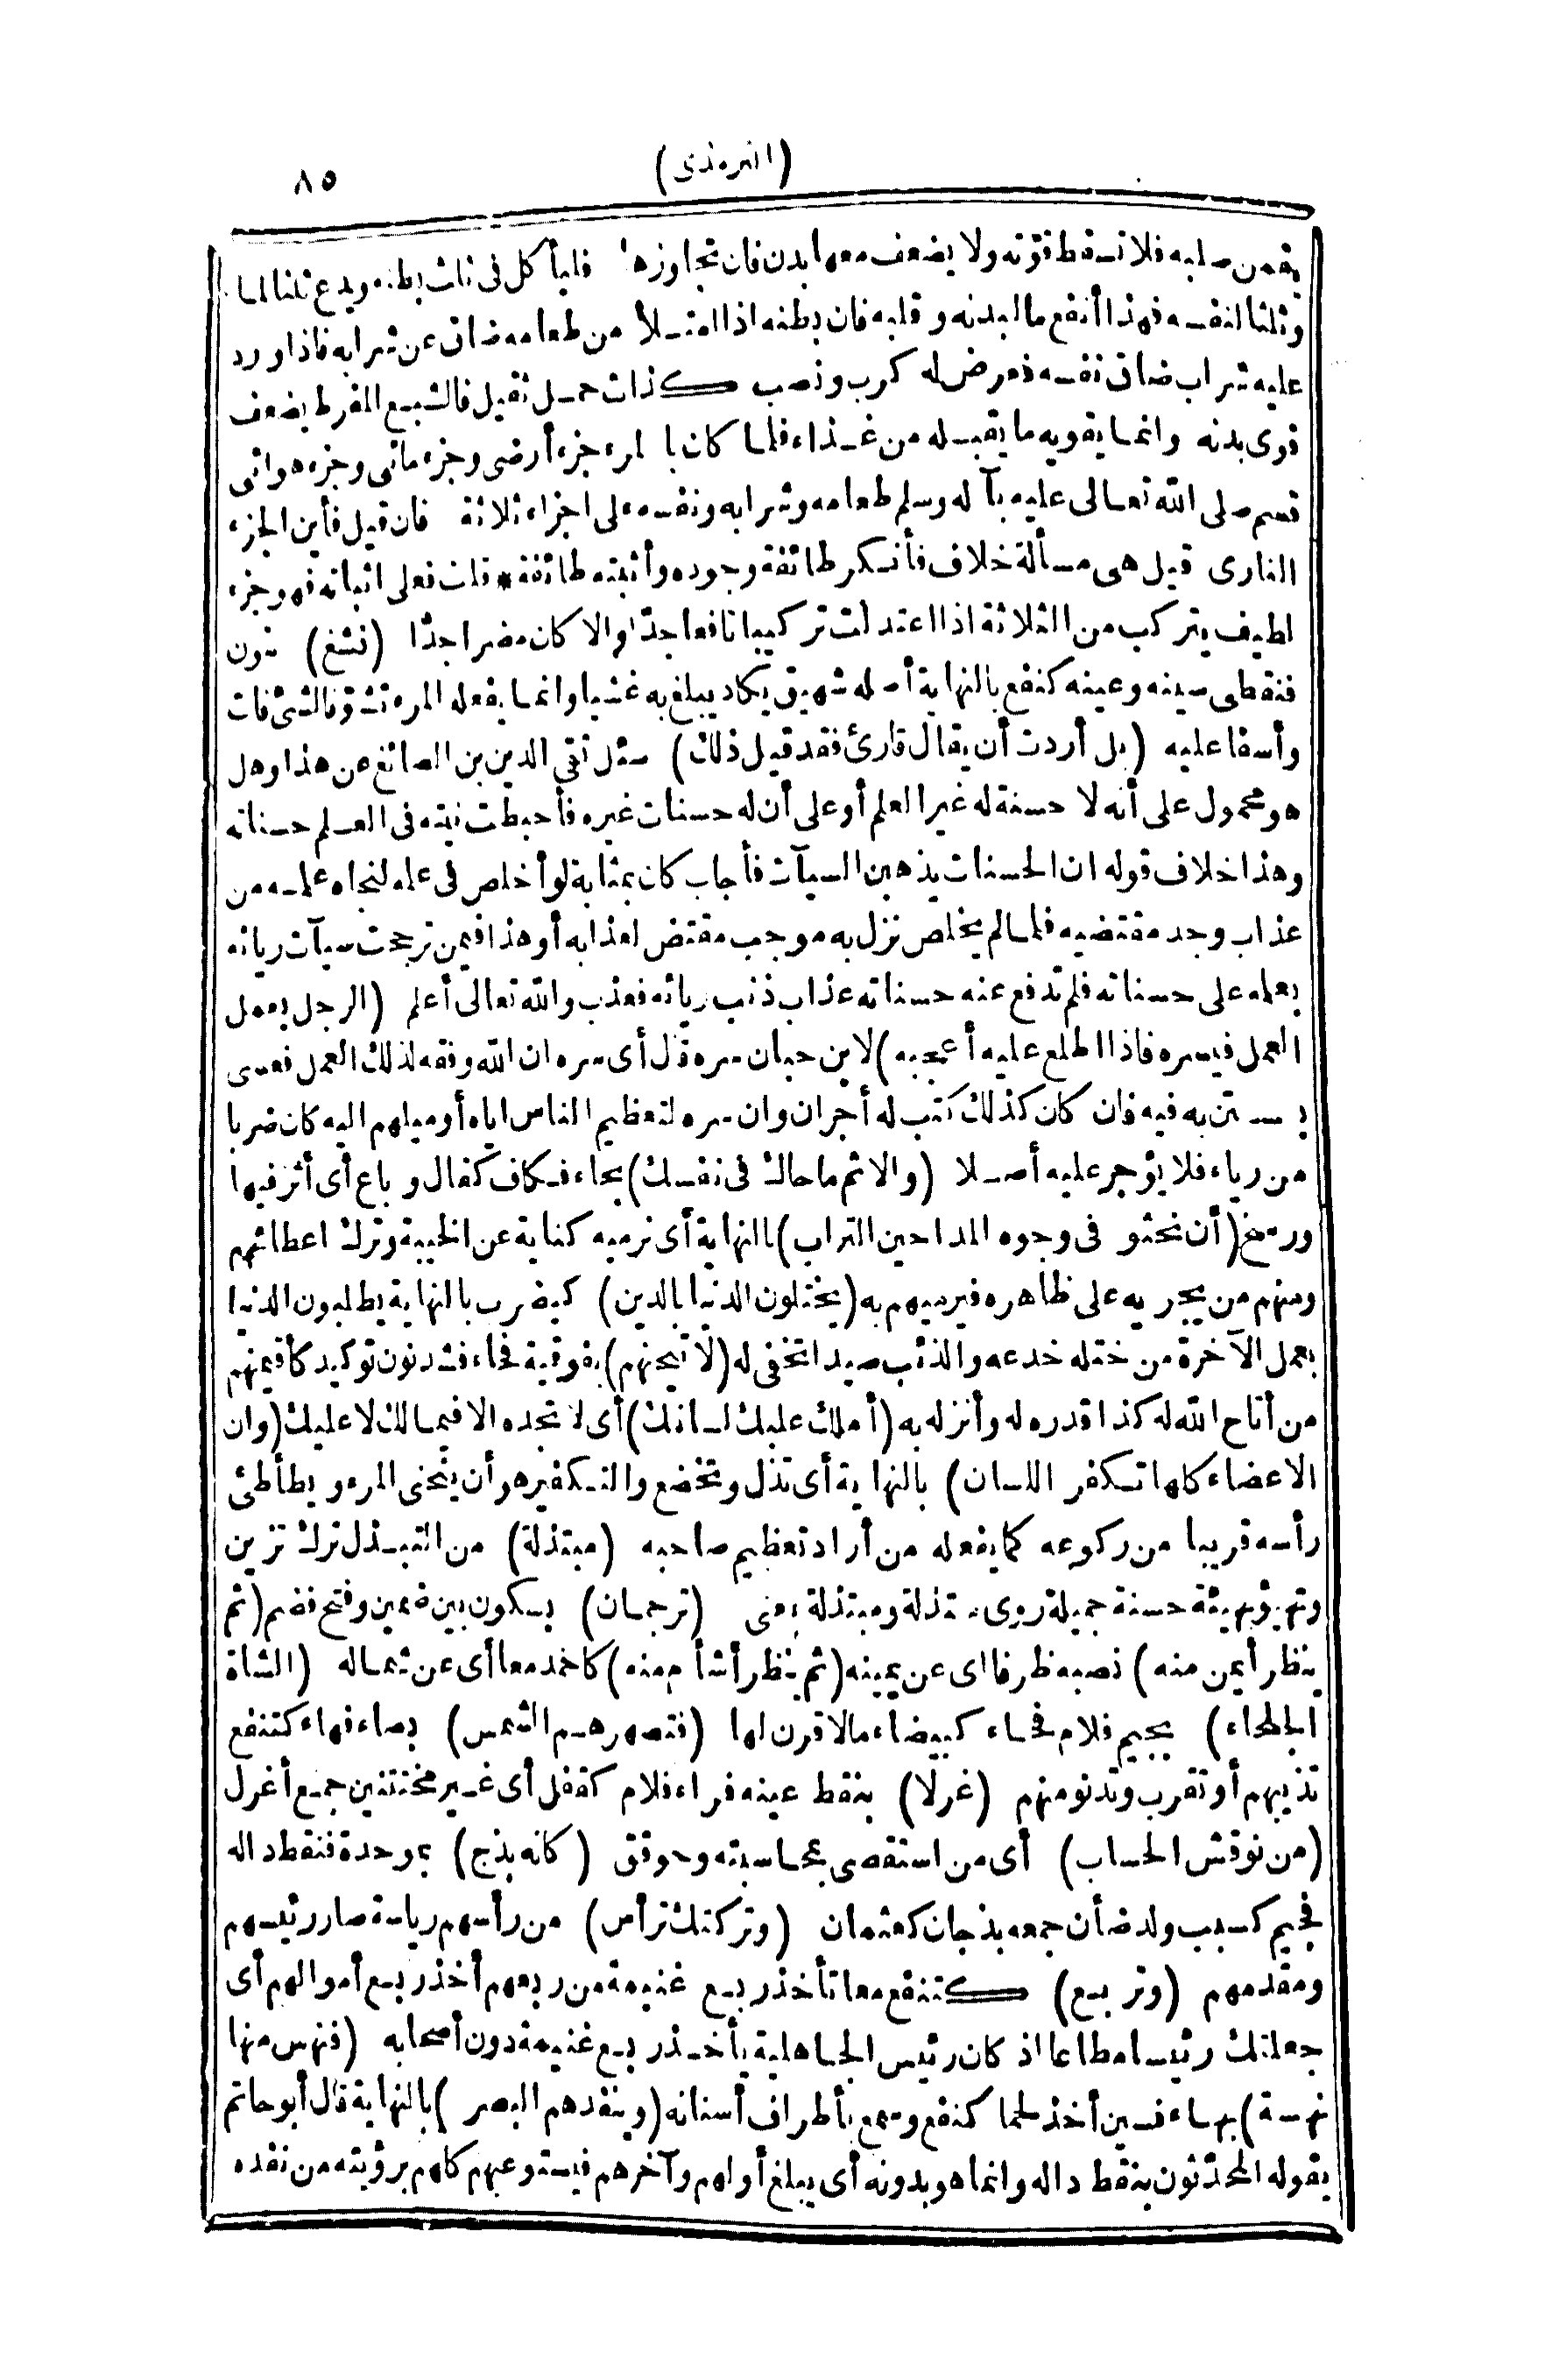 (الترمذى) ٨٥
يقمن صلبه فلا تسقط قوته ولا يضعف معها بدن فان تجاوزها فليأكل فى ثلث بطنه ويدع ثلثا للما
وثلثا لنفسه فهذا أنفع ما لبدنه وقلبه فان بطنه اذا امتلأ من طعامه ضاق عن شرابه فاذا ورد
عليه شراب ضاق نفسه فعرض له كرب ونصب كذات حمل ثقيل فالشبع المفرط يضعف
قوى بدنه وانما يقويه ما يقبله من غذاء فلما كان بالمرء جزء أرضى وجزء مائى وجزء هوائى
قسم صلى الله تعالى عليه بآله وسلم طعامه وشرابه ونفسه على اجزاء ثلاثة فان قيل فأين الجزء
النارى قيل هى مسألة خلاف فأنكر طائفة وجوده وأثبته طائفة * قلت فعلى اثباته فهو جزء
لطيف يتركب من الثلاثة اذا اعتدلت تركيبا نافعا جدّا والا كان مضرا جدّا (نشغ) بنون
فنقطى سينه وعينه كنفع بالنهاية أصله شهيق يكاد يبلغ به غشيا وانما يفعله المرء تشوقا لشئ فات
وأسفا عليه (بل أردت أن يقال قارئ فقد قيل ذلك) سئل تقى الدين بن الصائغ عن هذا وهل
هو محمول على أنه لا حسنة له غير العلم أو على أن له حسنات غيره فأحبطت نيته فى العلم حسناته
وهذا خلاف قوله ان الحسنات يذهبن السيآت فأجاب كان بمثابة لو أخلص فى علمه لنجاه علمه من
عذاب وجد مقتضيه فلما لم يخلص نزل به موجب مقتض لعذابه أو هذا فيمن ترجحت سيآت ريائه
بعلمه على حسناته فلم تدفع عنه حسناته عذاب ذنب ريائه فعذب والله تعالى أعلم (الرجل يعمل
العمل فيسره فاذا اطلع عليه أعجبه) لابن حبان سره قال أى سره ان الله وفقه لذلك العمل فعسى
يستن به فيه فان كان كذلك كتب له أجران وان سره لتعظيم الناس اياه أو ميلهم اليه كان ضربا
من رياء فلا يؤجر عليه أصلا (والاثم ما حاك فى نفسك) بحاء فكاف كقال وباع أى أثر فيها
ورسخ (أن نحثو فى وجوه المداحين التراب) بالنهاية أى نرميه كناية عن الخيبة وترك اعطائهم
ومنهم من يجريه على ظاهره فيرميهم به (يختلون الدنيا بالدين) كيضرب بالنهاية يطلبون الدنيا
بعمل الآخرة من ختله خدعه والذئب صيدا تخفى له (لاتيحنهم) بفوقية فحاء فشد نون توكيد كأقيمنهم
من أتاح الله له كذا قدره له وأنزله به (أملك عليك لسانك) أى لا تجده الا فيما لك لا عليك (وان
الاعضاء كلها تكفر اللسان) بالنهاية أى تذل وتخضع والتكفير هو أن ينحنى المرء ويطأطئ
رأسه قريبا من ركوعه كما يفعله من أراد تعظيم صاحبه (مبتذلة) من التبذل ترك تزين
وتهيؤ بهيئة حسنة جميلة روى متذلة ومبتذلة بمعنى (ترجمان) بسكون بين ضمين وفتح فضم (ثم
ينظر أيمن منه) نصبه ظرفا اى عن يمينه (ثم ينظر أشأم منه) كاحمد معا أى عن شماله (الشاة
الجلحاء) بجيم فلام فحاء كبيضاء ما لا قرن لها (فتصهرهم الشمس) بصاء فهاء كتنفع
تذيبهم أو تقرب وتدنو منهم (غرلا) بنقط عينه فراء فلام كقفل أى غير مختتنين جمع أغرل
(من نوقش الحساب) أى من استقصى بمحاسبته وحوقق (كانه بذج) بموحدة فنقط داله
فجيم كسبب ولد ضأن جمعه بذجان كعثمان (وتركتك ترأس) من رأسهم رياسة صار رئيسهم
ومقدمهم (وتربع) كتنفع معا تأخذ ربع غنيمة من ربعهم أخذ ربع أموالهم أى
جعلتك رئيسا مطاعا اذ كان رئيس الجاهلية يأخذ ربع غنيمة دون أصحابه (فنهس منها
نهسة) بهاء فسين أخذ لحما كنفع وسمع بأطراف أسنانه (وينفدهم البصر) بالنهاية قال أبو حاتم
يقوله المحدّثون بنقط داله وانما هو بدونه أى يبلغ أولهم وآخرهم فيستوعبهم كلهم برؤيته من نفده